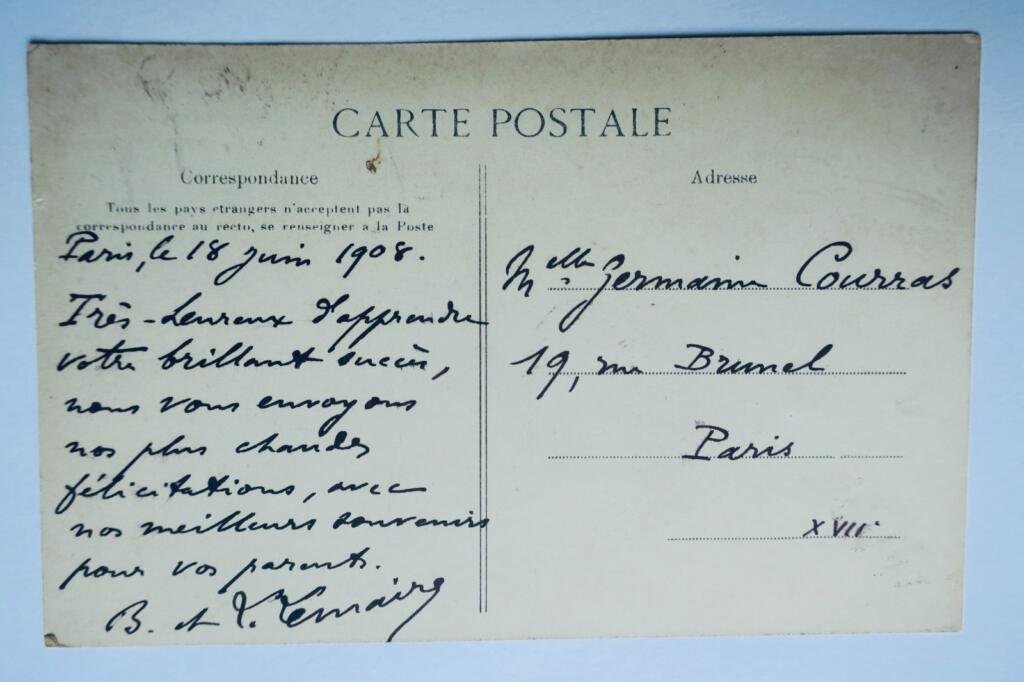 CARTE POSTALE
Correspondance
Tous les pays etrangers n'acceptent pas la
correspondance au recto, se renseigner a la Poste
Paris, le 18 juin 1908.
Très-heureux d'apprendre
votre brillant succès,
nous vous envoyons
nos plus chaudes
félicitations, avec
nos meilleurs souvenirs
pour vos parents.
B. et Lemaire
Adresse
Melle Germaine Courras
19, rue Brunel
Paris
XVIIe